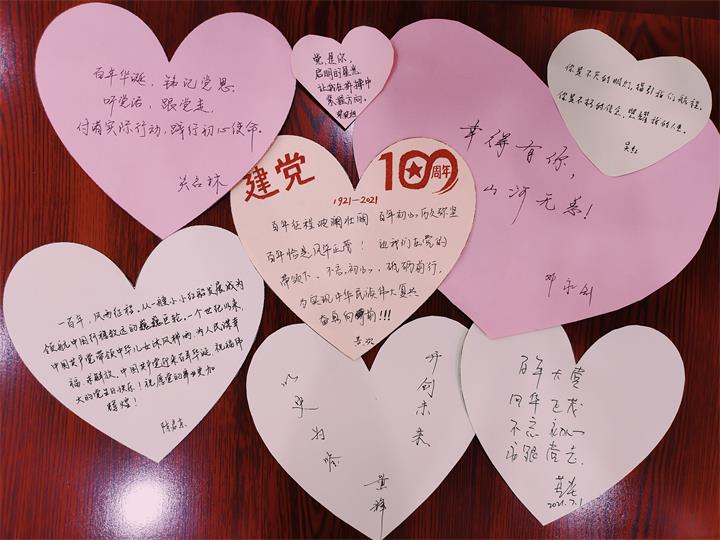 百年华诞，铭记党恩
听党话，跟党走，
付诸实际行动，践行初心使命。
党，是你，
启明的星光
让我在斗搏中
紧载方向。
你是不灭的明灯，指引我们航程，
你是不朽的信念，照耀我的人生。
吴红
幸得有你，
山河无恙！
邓永剑
建党100周年
1921-2021
百年征程波澜壮阔 百年初心历久弥坚
百年恰是风华正茂！让我们在党的
带领下、不忘初心、砥砺前行，
为实现中华民族伟大复兴
奋勇向前!!!
一百年，风雨征程。从一艘小小红船发展成为
领航中国行稳致远的巍巍巨轮。一个世纪以来，
中国共产党带领中华儿女沐风栉雨，为人民谋幸
福，求解放，中国共产党迎来百年华诞，祝福伟
大的党生日快乐！祝愿党的事业更加
辉煌！
以史为鉴
开创未来
百年大党
风华正茂
不忘初心
永跟党走
2021.7.1